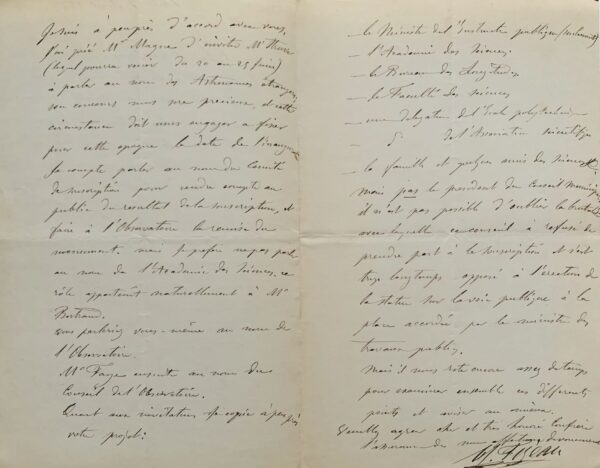 Je suis à peu près d'accord avec vous.
J'ai prié Mr Magne d'inviter Mr
(lequel pourra venir du 20 au 25 juin)
à parler au nom des Astronomes étrangers
son concours nous sera précieux, et cette
circonstance doit nous engager à fixer
pour cette époque la date de l'inaugur
Je compte parler au nom du Comité
de souscription pour rendre compte au
public du résultat de la souscription, et
faire à l'Observatoire la remise du
monument. mais je préfère ne pas parler
au nom de l'Académie des Sciences, ce
rôle appartient naturellement à Mr
Bertrand.
vous parleriez vous-même au nom de
l'Observatoire.
Mr Faye ensuite au nom du
Conseil de l'Observatoire.
Quant aux invitations je copie à peu près
votre projet:
— le Ministre de l'Instruction publique
— l'Académie des Sciences
— le Bureau des Longitudes
— la Faculté des Sciences
— une délégation de l'École polytechnique
— de l'Association scientifique
— la famille et quelques amis
mais pas le président du Conseil Municipal
il n'est pas possible d'oublier la brutalité
avec laquelle ce conseil à refusé de
prendre part à la souscription et s'est
trop longtemps opposé à l'érection de
la statue sur la voie publique à la
place accordée par le ministère des
travaux publics.
Mais il nous reste encore assez de temps
pour examiner ensemble ces différents
points et aviser au mieux.
Veuillez agréer cher et très honoré confrère
l'assurance de mes dévouement